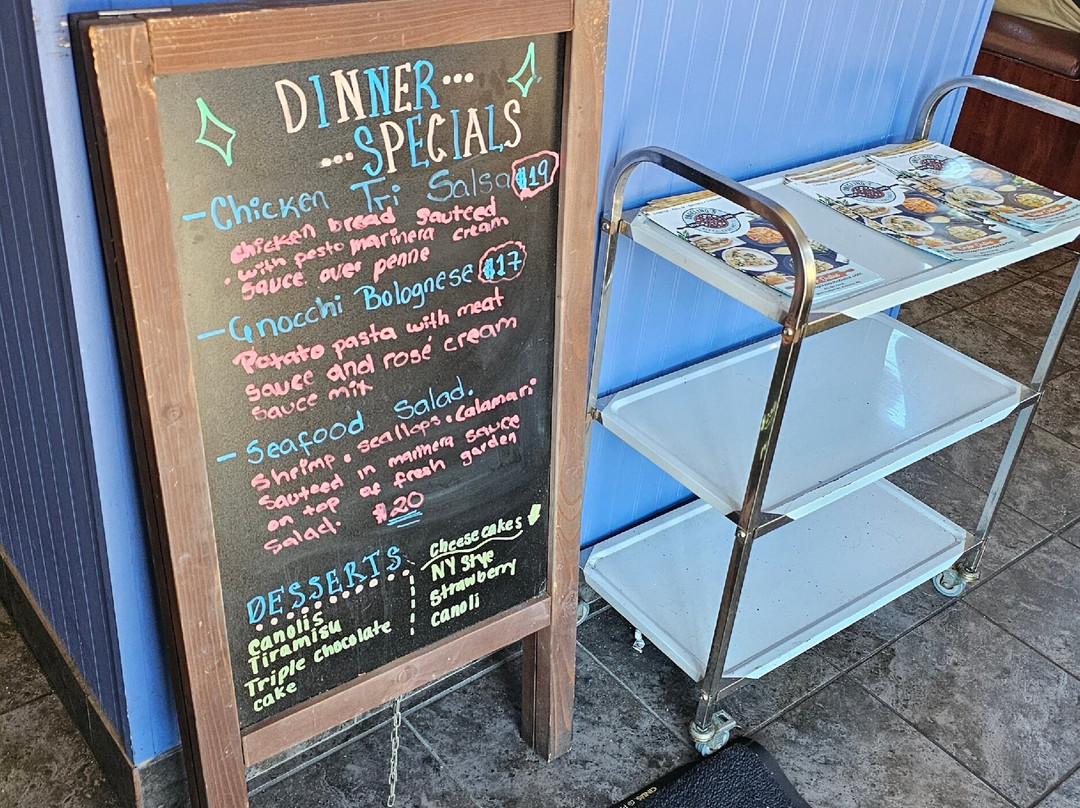 DINNER...
...SPECIALS
- Chicken Tri Salsa $19
chicken bread sauteed
with pesto marinera cream
sauce over penne
- Gnocchi Bolognese $17
Potato pasta with meat
sauce and rosé cream
sauce mix
- Seafood Salad.
Shrimp • scallops • Calamari
Sauteed in marinera sauce
on top of fresh garden
Salad. $20
DESSERTS
canolis
Tiramisu
Triple chocolate
cake
Cheesecakes
NY Stye
Strawberry
canoli